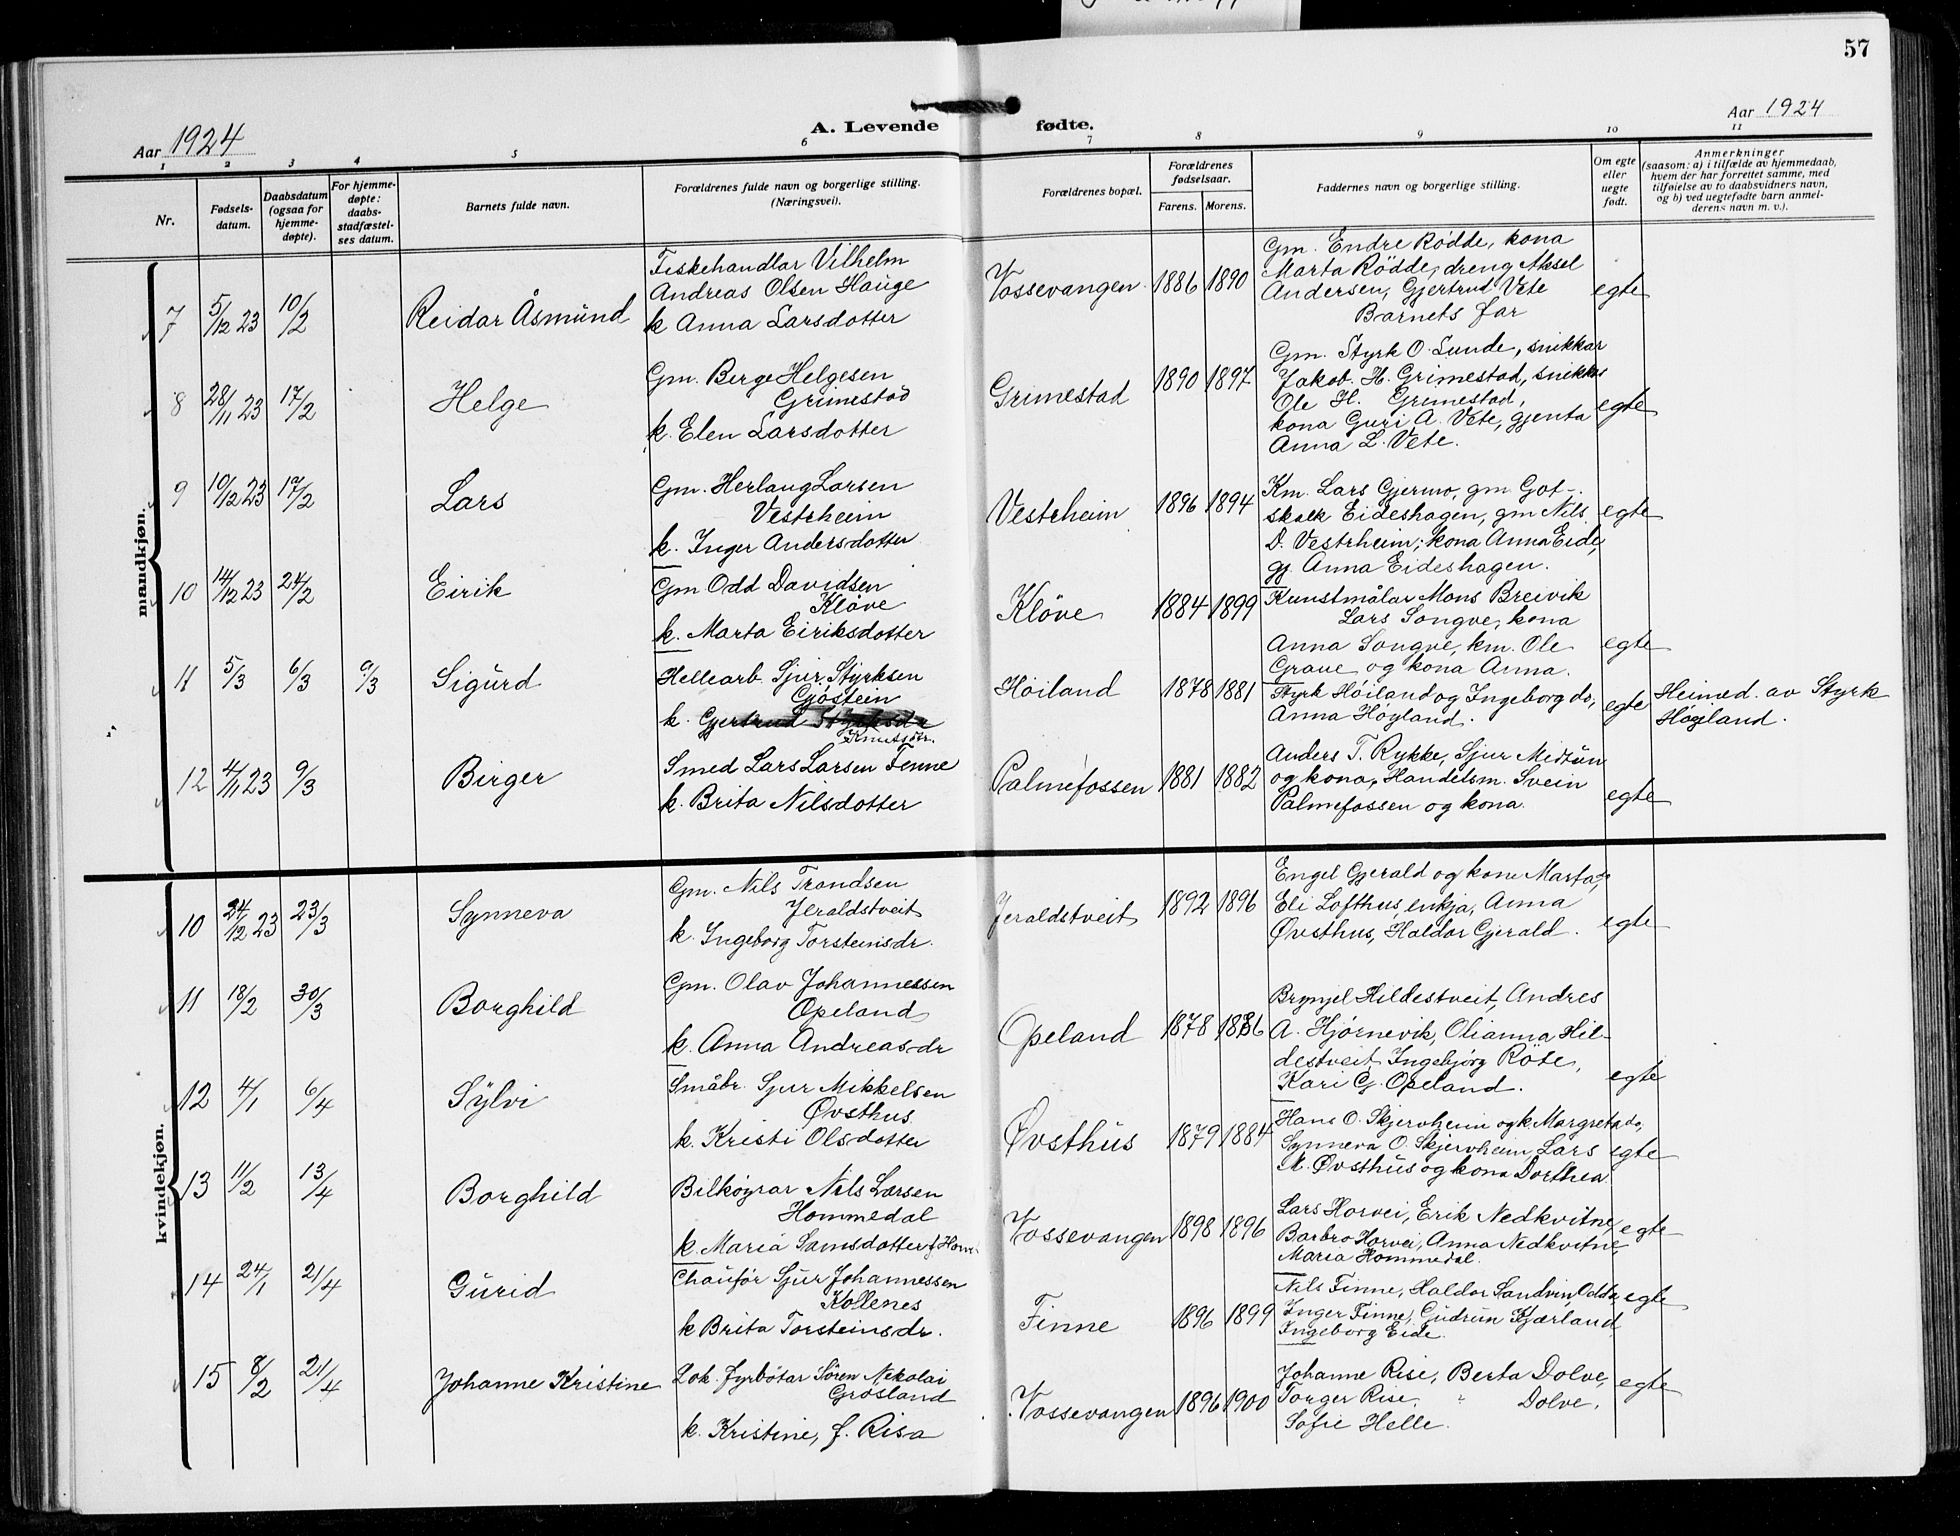 57
Aar 1924
A. Levende
fødte.
Aar 1924
1 2 3 4 5 6 7 8 9 10 11
Nr.
Fødsels-
datum.
Daabsdatum
(ogsaa for
hjemme-
døpte).
For hjemme-
døpte:
daabs-
stadfæstel-
ses datum.
Barnets fulde navn.
Forældrenes fulde navn og borgerlige stilling.
(Næringsvei).
Forældrenes bopæl.
Forældrenes
fødselsaar.
Farens. Morens.
Faddernes navn og borgerlige stilling.
Om egte
eller
uegte
født.
Anmerkninger
(saasom: a) i tilfælde av hjemmedaab,
hvem der har forrettet samme, med
tilføielse av to daabsvidners navn,
og b) ved uegtefødte barn anmel-
derens navn m. v.).
mandkjøn.
7 5/12 23 10/2 Reidar Åsmund
Fiskehandlar Vilhelm
Andreas Olsen Hauge
k Anna Larsdotter
Vossevangen 1886 1890
Gm. Endre Rödde, kona
Marta Rödde, dreng Aksel
Andersen, Gjertrud Vete
Barnets far
egte
8 28/11 23 17/2 Helge
Gm. Berge Helgesen
Grimestad
k. Elen Larsdotter
Grimestad 1890 1897
Gm. Styrk O. Lunde, snikkar
Jakob. H. Grimestad, snikkar
Ole H. Grimestad,
kona Guri A. Vete, gjenta
Anna L. Vete.
egte
9 10/12 23 17/2 Lars
Gm. Herlaug Larsen
Vestrheim
k. Inger Andersdotter
Vestrheim 1896 1894
Km. Lars Gjermo, gm Got-
skalk Eideshagen, gm Nils
D. Vestrheim, kona Anna Eide,
gj. Anna Eideshagen.
egte
10 14/12 23 24/2 Eirik
Gm Odd Davidsen
Klöve
k. Marta Eiriksdotter
Klöve 1884 1899
Kunstmålar Mons Breivik
Lars Songve, kona
Anna Songve, km. Ole
Graue og kona Anna.
egte
11 5/3 6/3 9/3 Sigurd
Hellearb. Sjur Styrksen
Gjøstein
k. Gjertrud Styrksdr
Knutsdtr.
Høiland 1878 1881
Styrk Høiland og Ingeborg do,
Anna Høyland.
egte
Heimed. av Styrk
Høyland.
12 4/11 23 9/3 Birger
Smed Lars Larsen Tenne
k. Brita Nilsdotter
Palmefossen 1881 1882
Anders T. Rykke, Sjur Medtun
og kona, Handelsm. Svein
Palmefossen og kona.
egte
kvindekjøn.
10 24/12 23 23/3 Synneva
Gm. Nils Trondsen
Jeraldstveit
k. Ingeborg Torsteinsdr.
Jeraldstveit 1892 1896
Engel Gjerald og kona Marta,
Eli Lofthus, enkja, Anna
Øvsthus, Haldor Gjerald.
egte
11 18/2 30/3 Borghild
Gm. Olav Johannessen
Opeland
k. Anna Andreasdr
Opeland 1878 1886
Brynjel Hildestveit, Andres
A. Hjørnevik, Olianna Hil-
destveit, Ingebjørg Röte,
Kari G. Opeland.
egte
12 4/1 6/4 Sylvi
Småbr. Sjur Mikkelsen
Øvsthus.
k. Kristi Olsdotter
Øvsthus 1879 1884
Hans O. Skjervheim og k. Margreta do,
Synneva O. Skjervheim, Lars
M. Øvsthus og kona Dorthea
egte
13 11/2 13/4 Borghild
Bilkøyrar Nils Larsen
Hommedal
k. Maria Samsdotter f. Horvei
Vossevangen 1898 1896
Lars Horvei, Erik Nedkvitne,
Barbro Horvei, Anna Nedkvitne,
Maria Hommedal.
egte
14 24/1 21/4 Gurid
Chaufør Sjur Johannessen
Kollenes
k Brita Torsteinsdr.
Finne 1896 1899
Nils Finne, Haldor Sandvin, Odda,
Inger Finne, Gudrun Kjærland,
Ingeborg Eide.
egte
15 8/2 21/4 Johanne Kristine
Lok. fyrbøtar Søren Nekolai
Grosland
k. Kristine, f. Risa
Vossevangen 1896 1900
Johanne Rise, Berta Dolve,
Torger Rise, " Dolve,
Sofie Helle.
egte